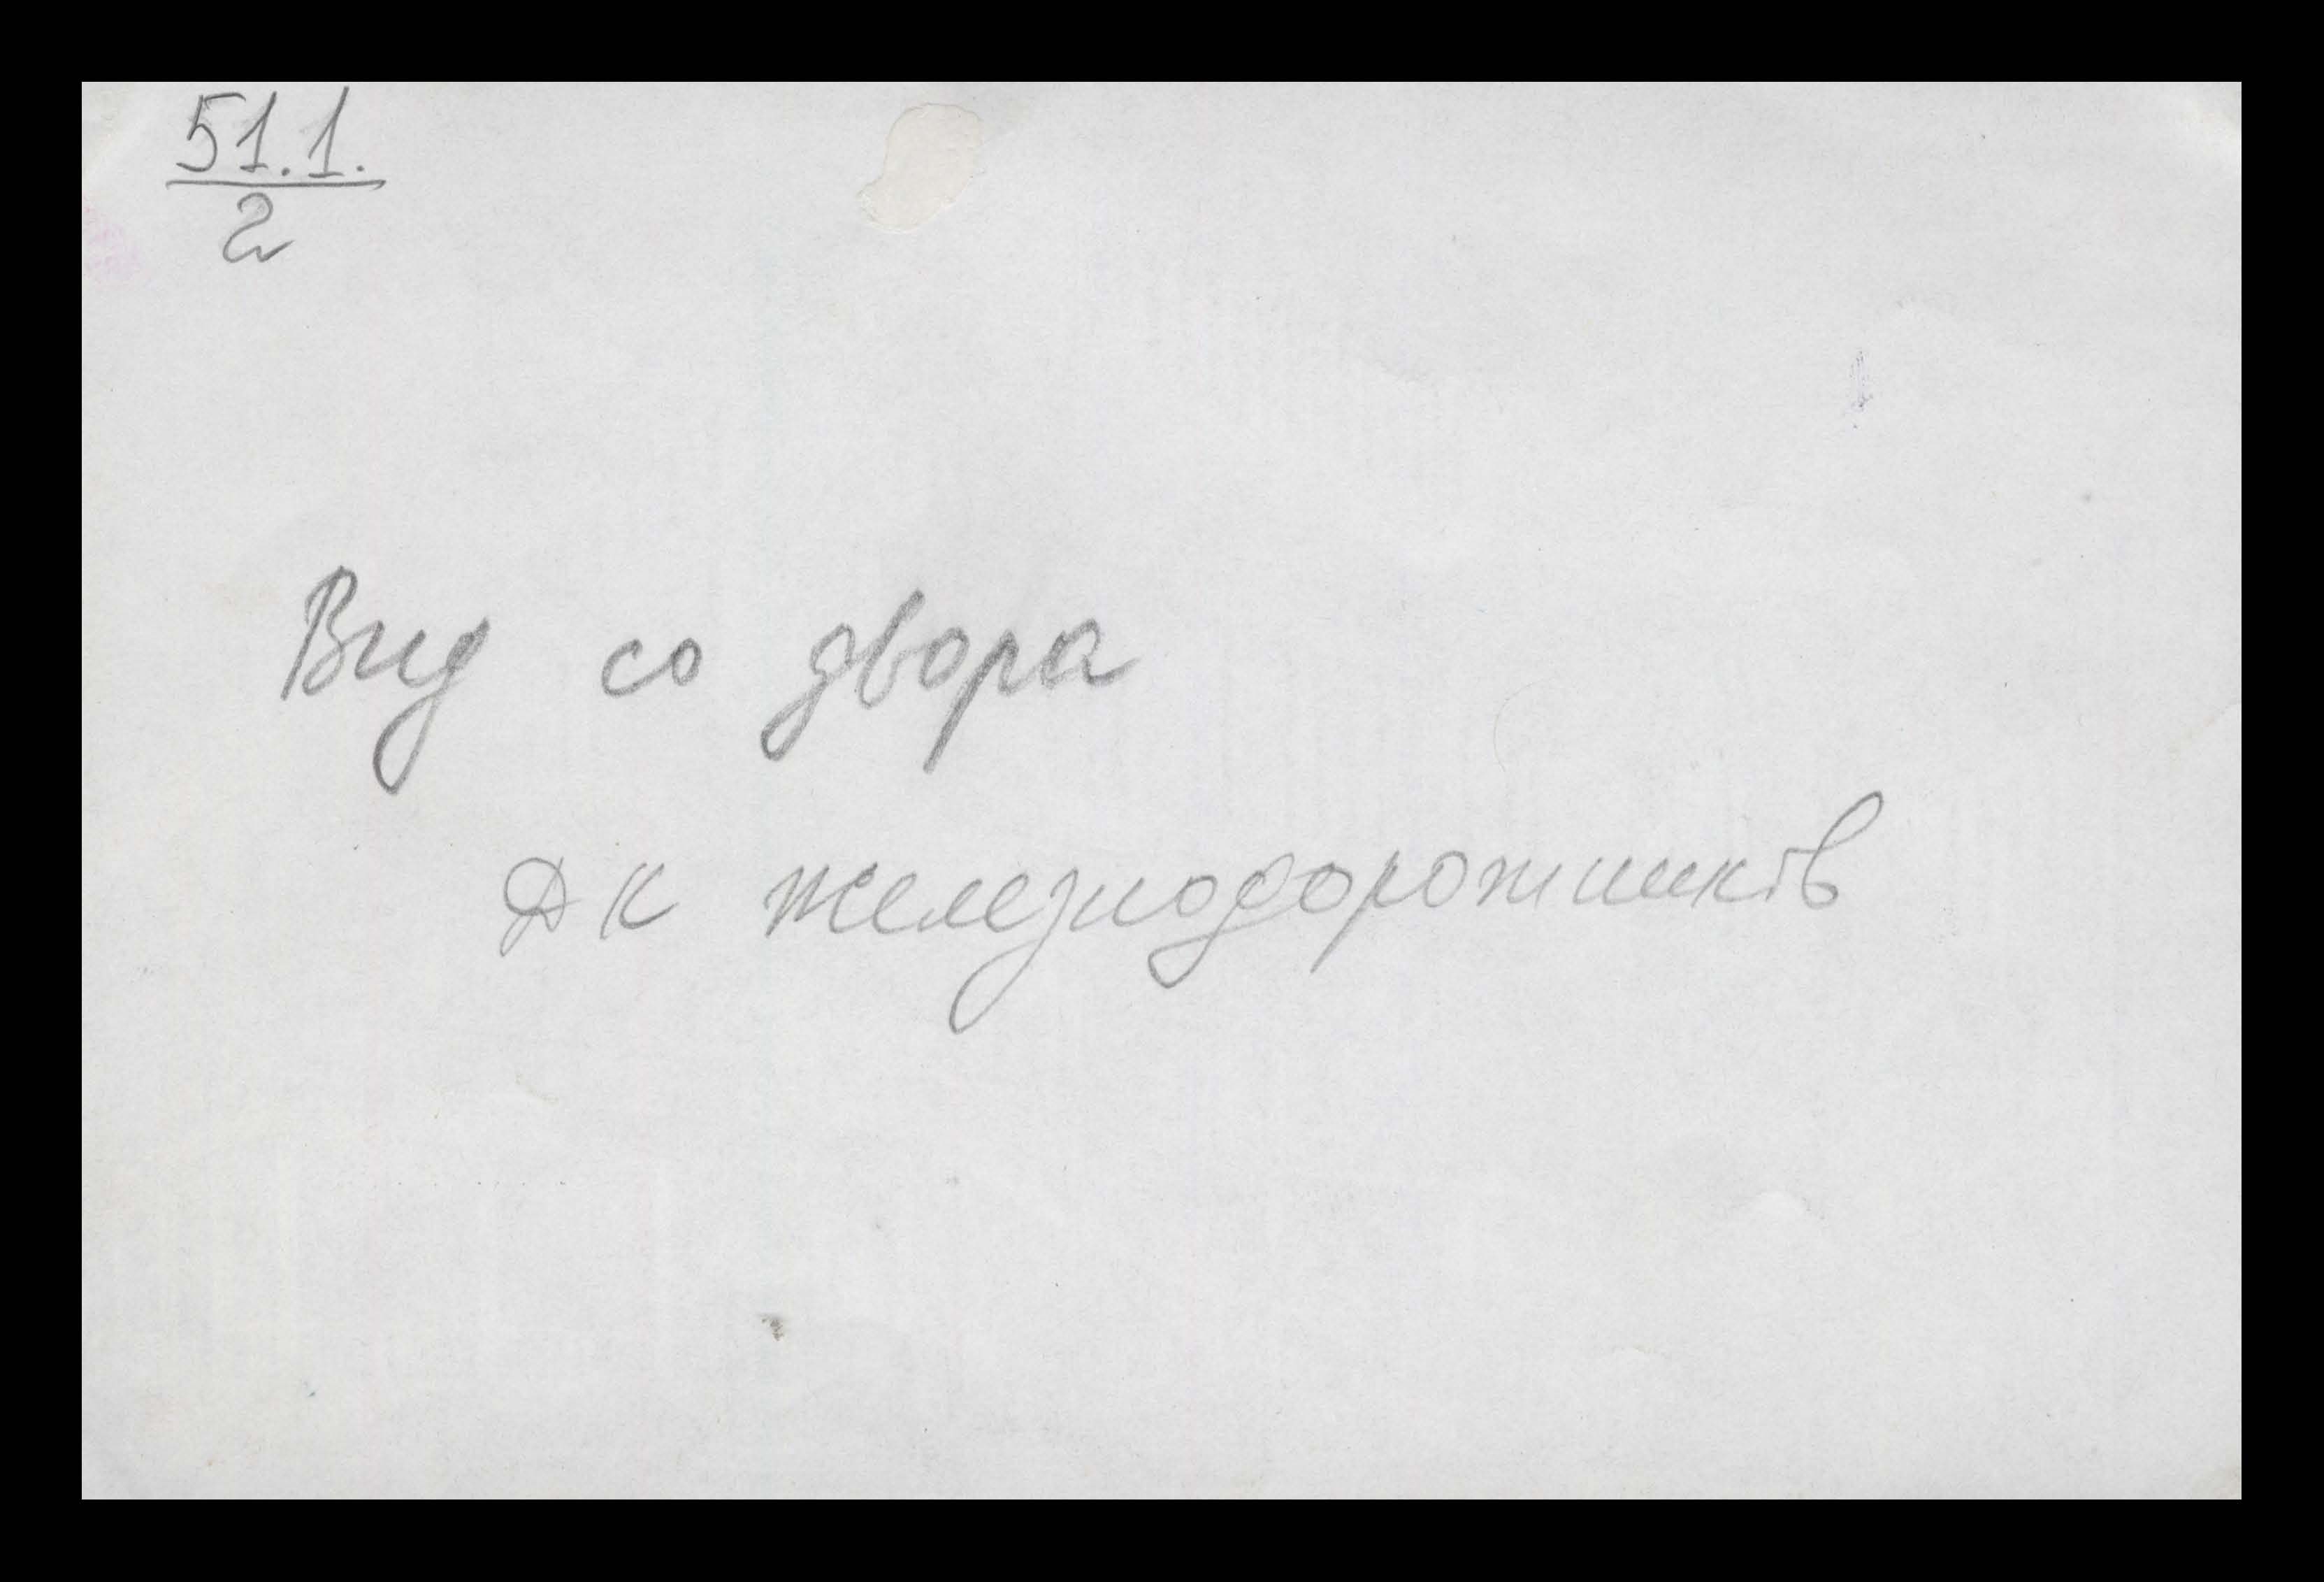 51.1.
2
Вид со двора
ДК железнодорожників